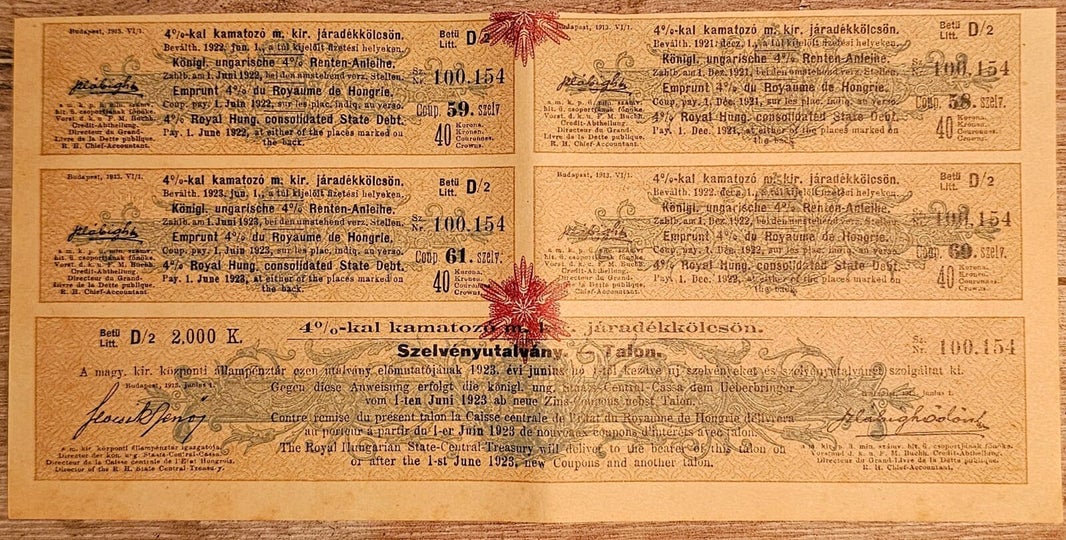 Budapest, 1913. VI/1.
4%-kal kamatozó m. kir. járadékkölcsön.
Betű
Litt. D/2
Beválth. 1922. jun. 1., a túl kijelölt fizetési helyeken.
Königl. ungarische 4% Renten-Anleihe.
Zahlb. am 1. Juni 1922, bei den umstehend verz. Stellen.
Sz.
Nr. 100.154
Emprunt 4% du Royaume de Hongrie.
Coup. pay. 1. Juin 1922, sur les plac. indiq. au verso.
Coup. 59. szelv.
4% Royal Hung. consolidated State Debt.
Pay. 1. June 1922, at either of the places marked on
the back.
40 Korona.
Kronen.
Couronnes.
Crowns.
hit. ü. csoportjának főnöke.
Vorst. d. k. u. F. M. Buchh.
Credit-Abtheilung.
Directeur du Grand-
Livre de la Dette publique.
R. H. Chief-Accountant.
Budapest, 1913. VI/1.
4%-kal kamatozó m. kir. járadékkölcsön.
Betű
Litt. D/2
Beválth. 1921. decz. 1., a túl kijelölt fizetési helyeken.
Königl. ungarische 4% Renten-Anleihe.
Zahlb. am 1. Dez. 1921, bei den umstehend verz. Stellen.
Sz.
Nr. 100.154
Emprunt 4% du Royaume de Hongrie.
Coup. pay. 1. Déc. 1921, sur les plac. indiq. au verso.
Coup. 58. szelv.
4% Royal Hung. consolidated State Debt.
Pay. 1. Dec. 1921, at either of the places marked on
the back.
40 Korona.
Kronen.
Couronnes.
Crowns.
hit. ü. csoportjának főnöke.
Vorst. d. k. u. F. M. Buchh.
Credit-Abtheilung.
Directeur du Grand-
Livre de la Dette publique.
R. H. Chief-Accountant.
Budapest, 1913. VI/1.
4%-kal kamatozó m. kir. járadékkölcsön.
Betű
Litt. D/2
Beválth. 1923. jun. 1., a túl kijelölt fizetési helyeken.
Königl. ungarische 4% Renten-Anleihe.
Zahlb. am 1. Juni 1923, bei den umstehend verz. Stellen.
Sz.
Nr. 100.154
Emprunt 4% du Royaume de Hongrie.
Coup. pay. 1. Juin 1923, sur les plac. indiq. au verso.
Coup. 61. szelv.
4% Royal Hung. consolidated State Debt.
Pay. 1. June 1923, at either of the places marked on
the back.
40 Korona.
Kronen.
Couronnes.
Crowns.
hit. ü. csoportjának főnöke.
Vorst. d. k. u. F. M. Buchh.
Credit-Abtheilung.
Directeur du Grand-
Livre de la Dette publique.
R. H. Chief-Accountant.
Budapest, 1913. VI/1.
4%-kal kamatozó m. kir. járadékkölcsön.
Betű
Litt. D/2
Beválth. 1922. decz. 1., a túl kijelölt fizetési helyeken.
Königl. ungarische 4% Renten-Anleihe.
Zahlb. am 1. Dez. 1922, bei den umstehend verz. Stellen.
100.154
Emprunt 4% du Royaume de Hongrie.
Coup. pay. 1. Déc. 1922, sur les plac. indiq. au verso.
szelv.
4% Royal Hung. consolidated State Debt.
Pay. 1. Dec. 1922, at either of the places marked on
the back.
40 Korona.
Kronen.
Couronnes.
Crowns.
hit. ü. csoportjának főnöke.
Vorst. d. k. u. F. M. Buchh.
Credit-Abtheilung.
Directeur du Grand-
Livre de la Dette publique.
R. H. Chief-Accountant.
Betű
Litt. D/2 2,000 K.
4%-kal kamatozó m. kir. járadékkölcsön.
Sz.
Nr. 100.154
Szelvényutalvány. Talon.
A magy. kir. központi állampénztár ezen utalvány előmutatójának 1923. évi junius hó 1-től kezdve uj szelvényeket és szelvényutalványt szolgáltat ki.
Budapest, 1913. junius 1.
Gegen diese Anweisung erfolgt die königl. ung. Staats-Central-Cassa dem Ueberbringer
vom 1-ten Juni 1923 ab neue Zins-Coupons nebst Talon.
Budapest, 1913. junius 1.
Contre remise du présent talon la Caisse centrale de l'Etat du Royaume de Hongrie délivrera
au porteur à partir du 1-er Juin 1923 de nouveaux coupons d'intérêts avec talon.
The Royal Hungarian State-Central-Treasury will deliver to the bearer of this talon on
or after the 1-st June 1923, new Coupons and another talon.
a m. kir. központi állampénztár igazgatója.
Director der kön. ung. Staats-Central-Cassa.
Directeur de la Caisse centrale de l'Etat Hongrois.
Director of the R. H. State Central-Treasury.
Vorstand d. k. u. F. M. Buchh. Credit-Abtheilung.
Directeur du Grand-Livre de la Dette publique.
R. H. Chief-Accountant.